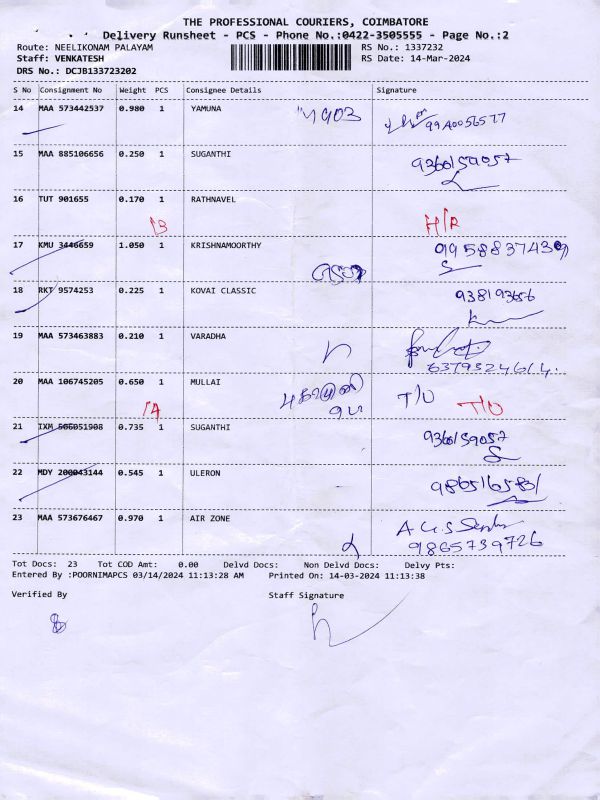 THE PROFESSIONAL COURIERS, COIMBATORE
Delivery Runsheet - PCS - Phone No.:0422-3505555 - Page No.:2
Route: NEELIKONAM PALAYAM RS No.: 1337232
Staff: VENKATESH RS Date: 14-Mar-2024
DRS No.: DCJB133723202
S No Consignment No Weight PCS Consignee Details Signature
14 MAA 573442537 0.980 1 YAMUNA
15 MAA 885106656 0.250 1 SUGANTHI 9360159057
16 TUT 901655 0.170 1 RATHNAVEL H/R
17 KMU 3446659 1.050 1 KRISHNAMOORTHY
18 RKT 9574253 0.225 1 KOVAI CLASSIC 938193656
19 MAA 573463883 0.210 1 VARADHA
20 MAA 106745205 0.650 1 MULLAI T/O T/O
21 IXM 505051908 0.735 1 SUGANTHI 9360159057
22 MDY 200043144 0.545 1 ULERON 9865165831
23 MAA 573676467 0.970 1 AIR ZONE 9865739726
Tot Docs: 23 Tot COD Amt: 0.00 Delvd Docs: Non Delvd Docs: Delvy Pts:
Entered By :POORNIMAPCS 03/14/2024 11:13:28 AM Printed On: 14-03-2024 11:13:38
Verified By Staff Signature